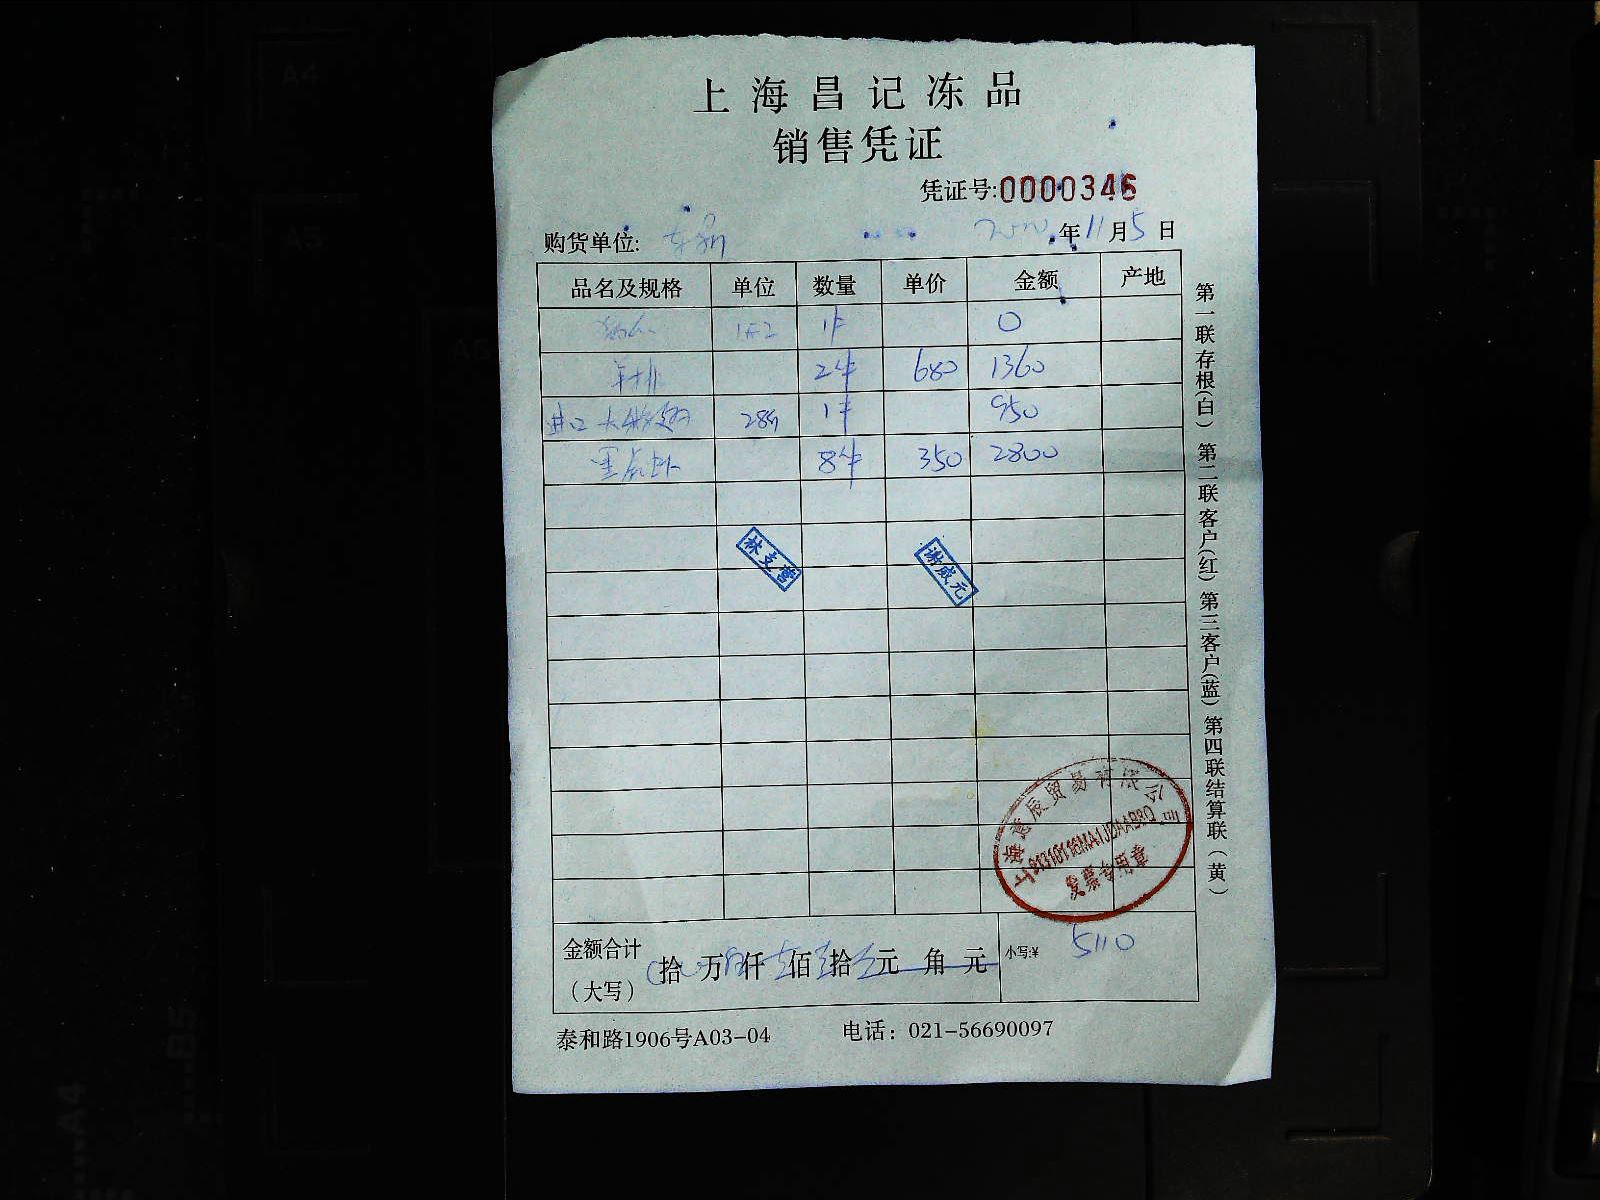 上海昌记冻品
销售凭证
凭证号:0000346
购货单位: 年11月5日
品名及规格 单位 数量 单价 金额 产地
1件 0
2件 680 1360
进口大 1件 950
8件 350 2800
林支营 谢威元
上海 辰贸易有限公司
发票专用章
金额合计
(大写) 拾 万 仟 佰 拾 元 角 元 小写:¥ 5110
泰和路1906号A03-04 电话：021-56690097
第一联存根(白) 第二联客户(红) 第三客户(蓝) 第四联结算联(黄)